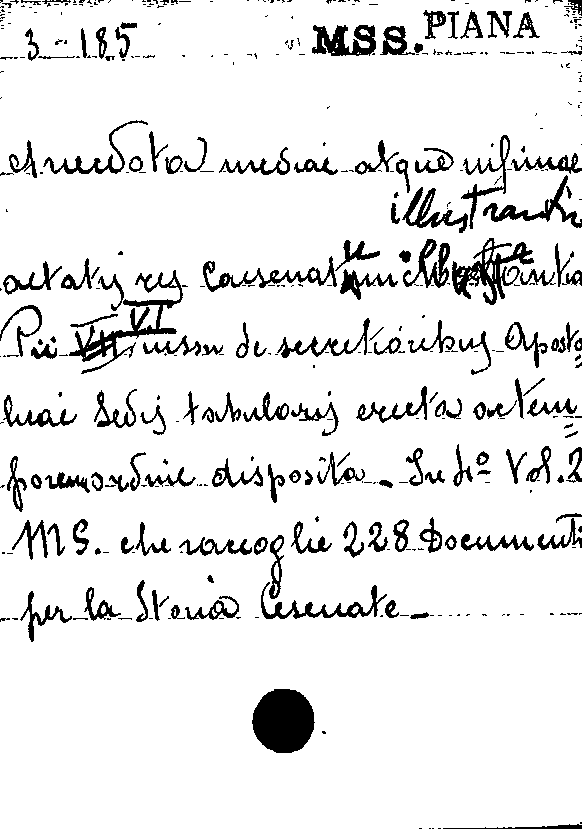 3-185 MSS. PIANA
Anecdota mediae atque infimae
illustrantia
aetatis res Caesenatum
Pii VI iussu de secretioribus Aposto
licae Sedis tabulariis erecta ac tem
porum ordine disposita - In fo Vol. 2
MS. che raccoglie 228 Documenti
per la Storia Cesenate -